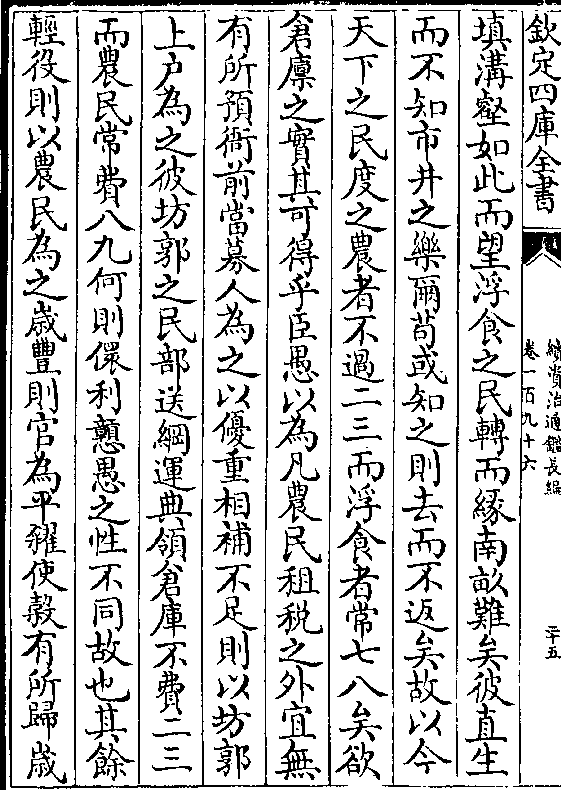 欽定四庫全書
續資治通鑑長編
卷一百九十六
二十五
填溝壑如此而望浮食之民轉而緣南畝難矣彼直生
而不知市井之樂爾苟或知之則去而不返矣故以今
天下之民度之農者不過二三而浮食者常七八矣欲
倉廩之實其可得乎臣愚以為凡農民租税之外宜無
有所預衙前當募人為之以優重相補不足則以坊郭
上户為之彼坊郭之民部送綱運典領倉庫不費二三
而農民常費八九何則儇利戇愚之性不同故也其餘
輕役則以農民為之歳豐則官為平糴使榖有所歸歳